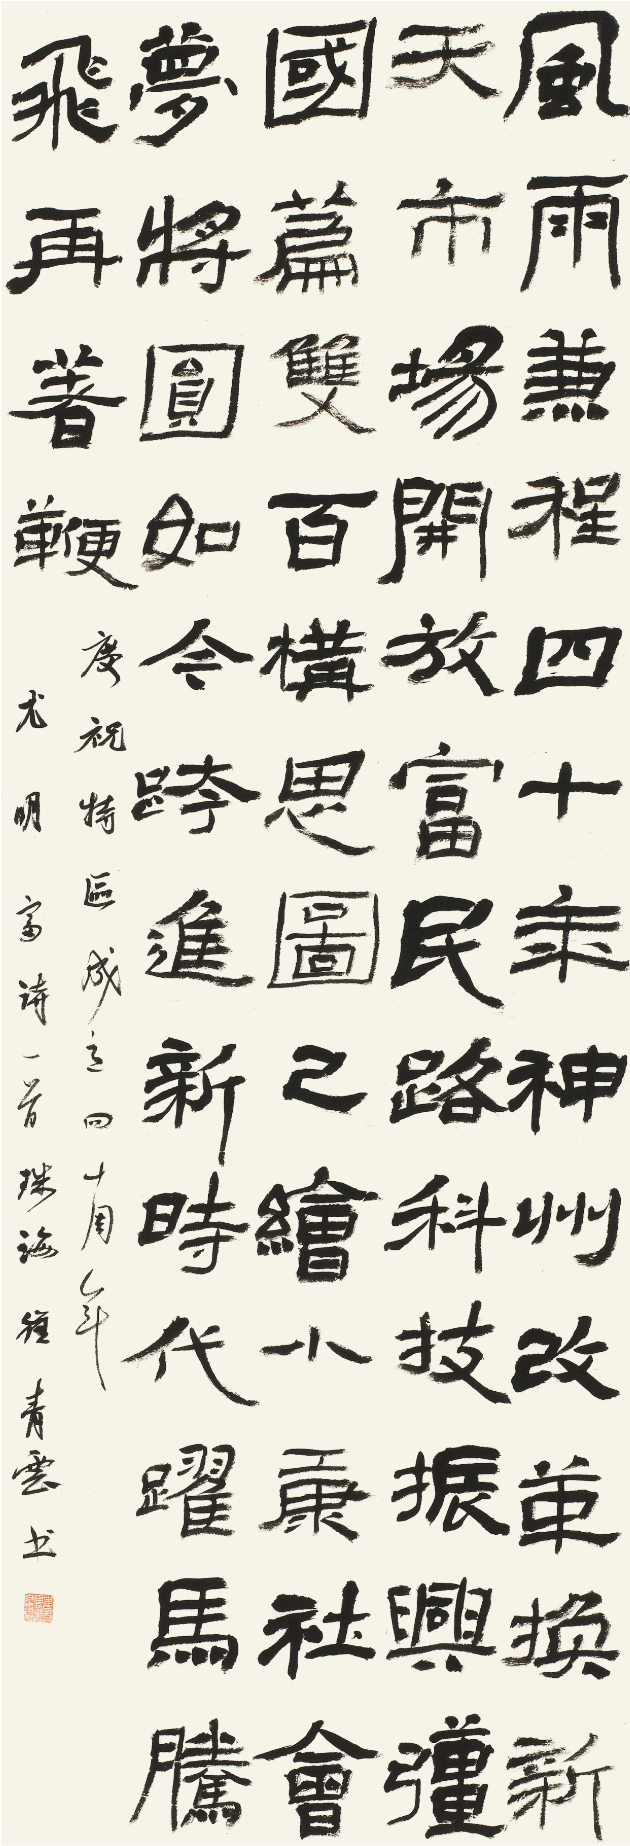 風雨兼程四十年神州改革換新
天市場開放富民路科技振興彊
國篇雙百構思圖已繪小康社會
夢將圓如今跨進新時代躍馬騰
飛再著鞭
慶祝特區成立四十周年
尤明富詩一首珠海鍾青雲书